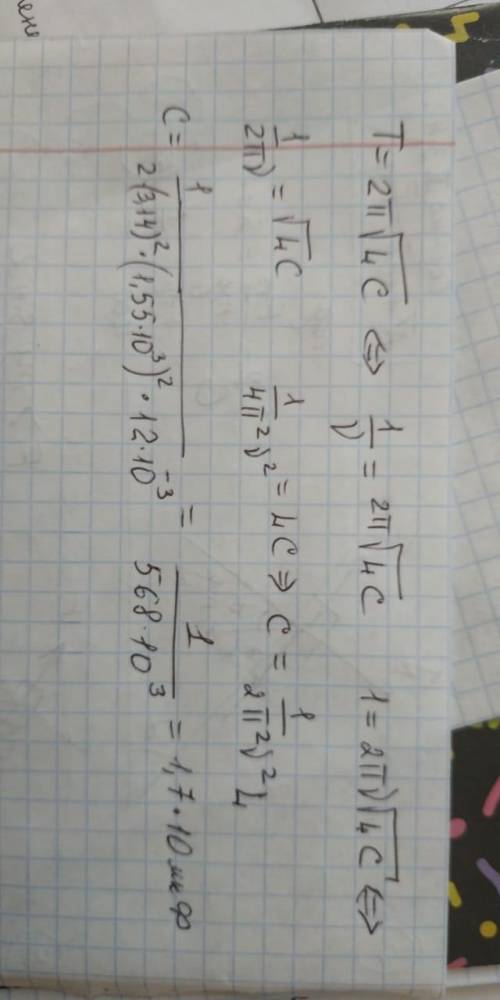 T = 2π√LC ⇔ 1/ν = 2π√LC 1 = 2πν√LC ⇔
1/2πν = √LC 1/4π²ν² = LC ⇒ C = 1/2π²ν²L
C = 1/2·(3,14)²·(1,55·10³)²·12·10⁻³ = 1/568·10³ = 1,7·10 мкФ